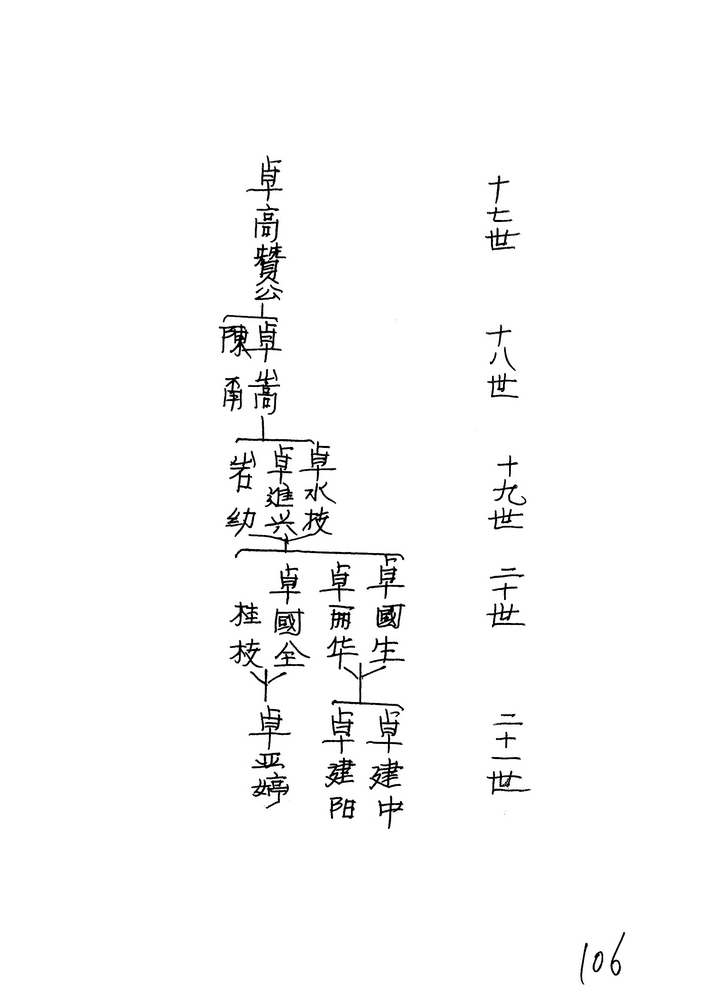 十七世
卓高贊公
十八世
卓嵩
陳甭
十九世
卓水技
卓進兴
岩幼
二十世
卓國生
卓丽华
卓國全
桂枝
二十一世
卓建中
卓建阳
卓亚婷
106